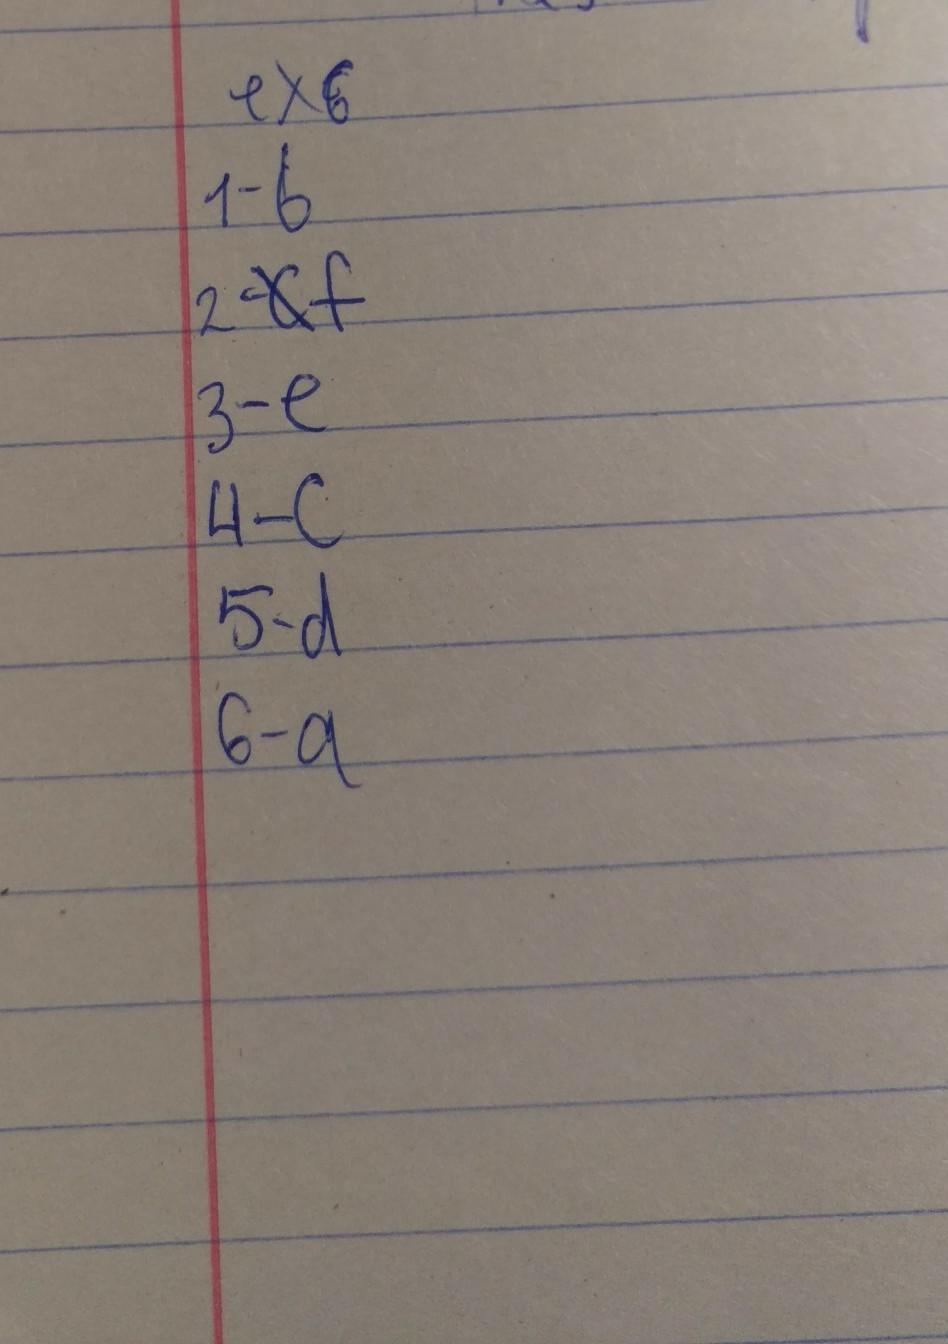 ex 6
1-b
2-f
3-e
4-c
5-d
6-a